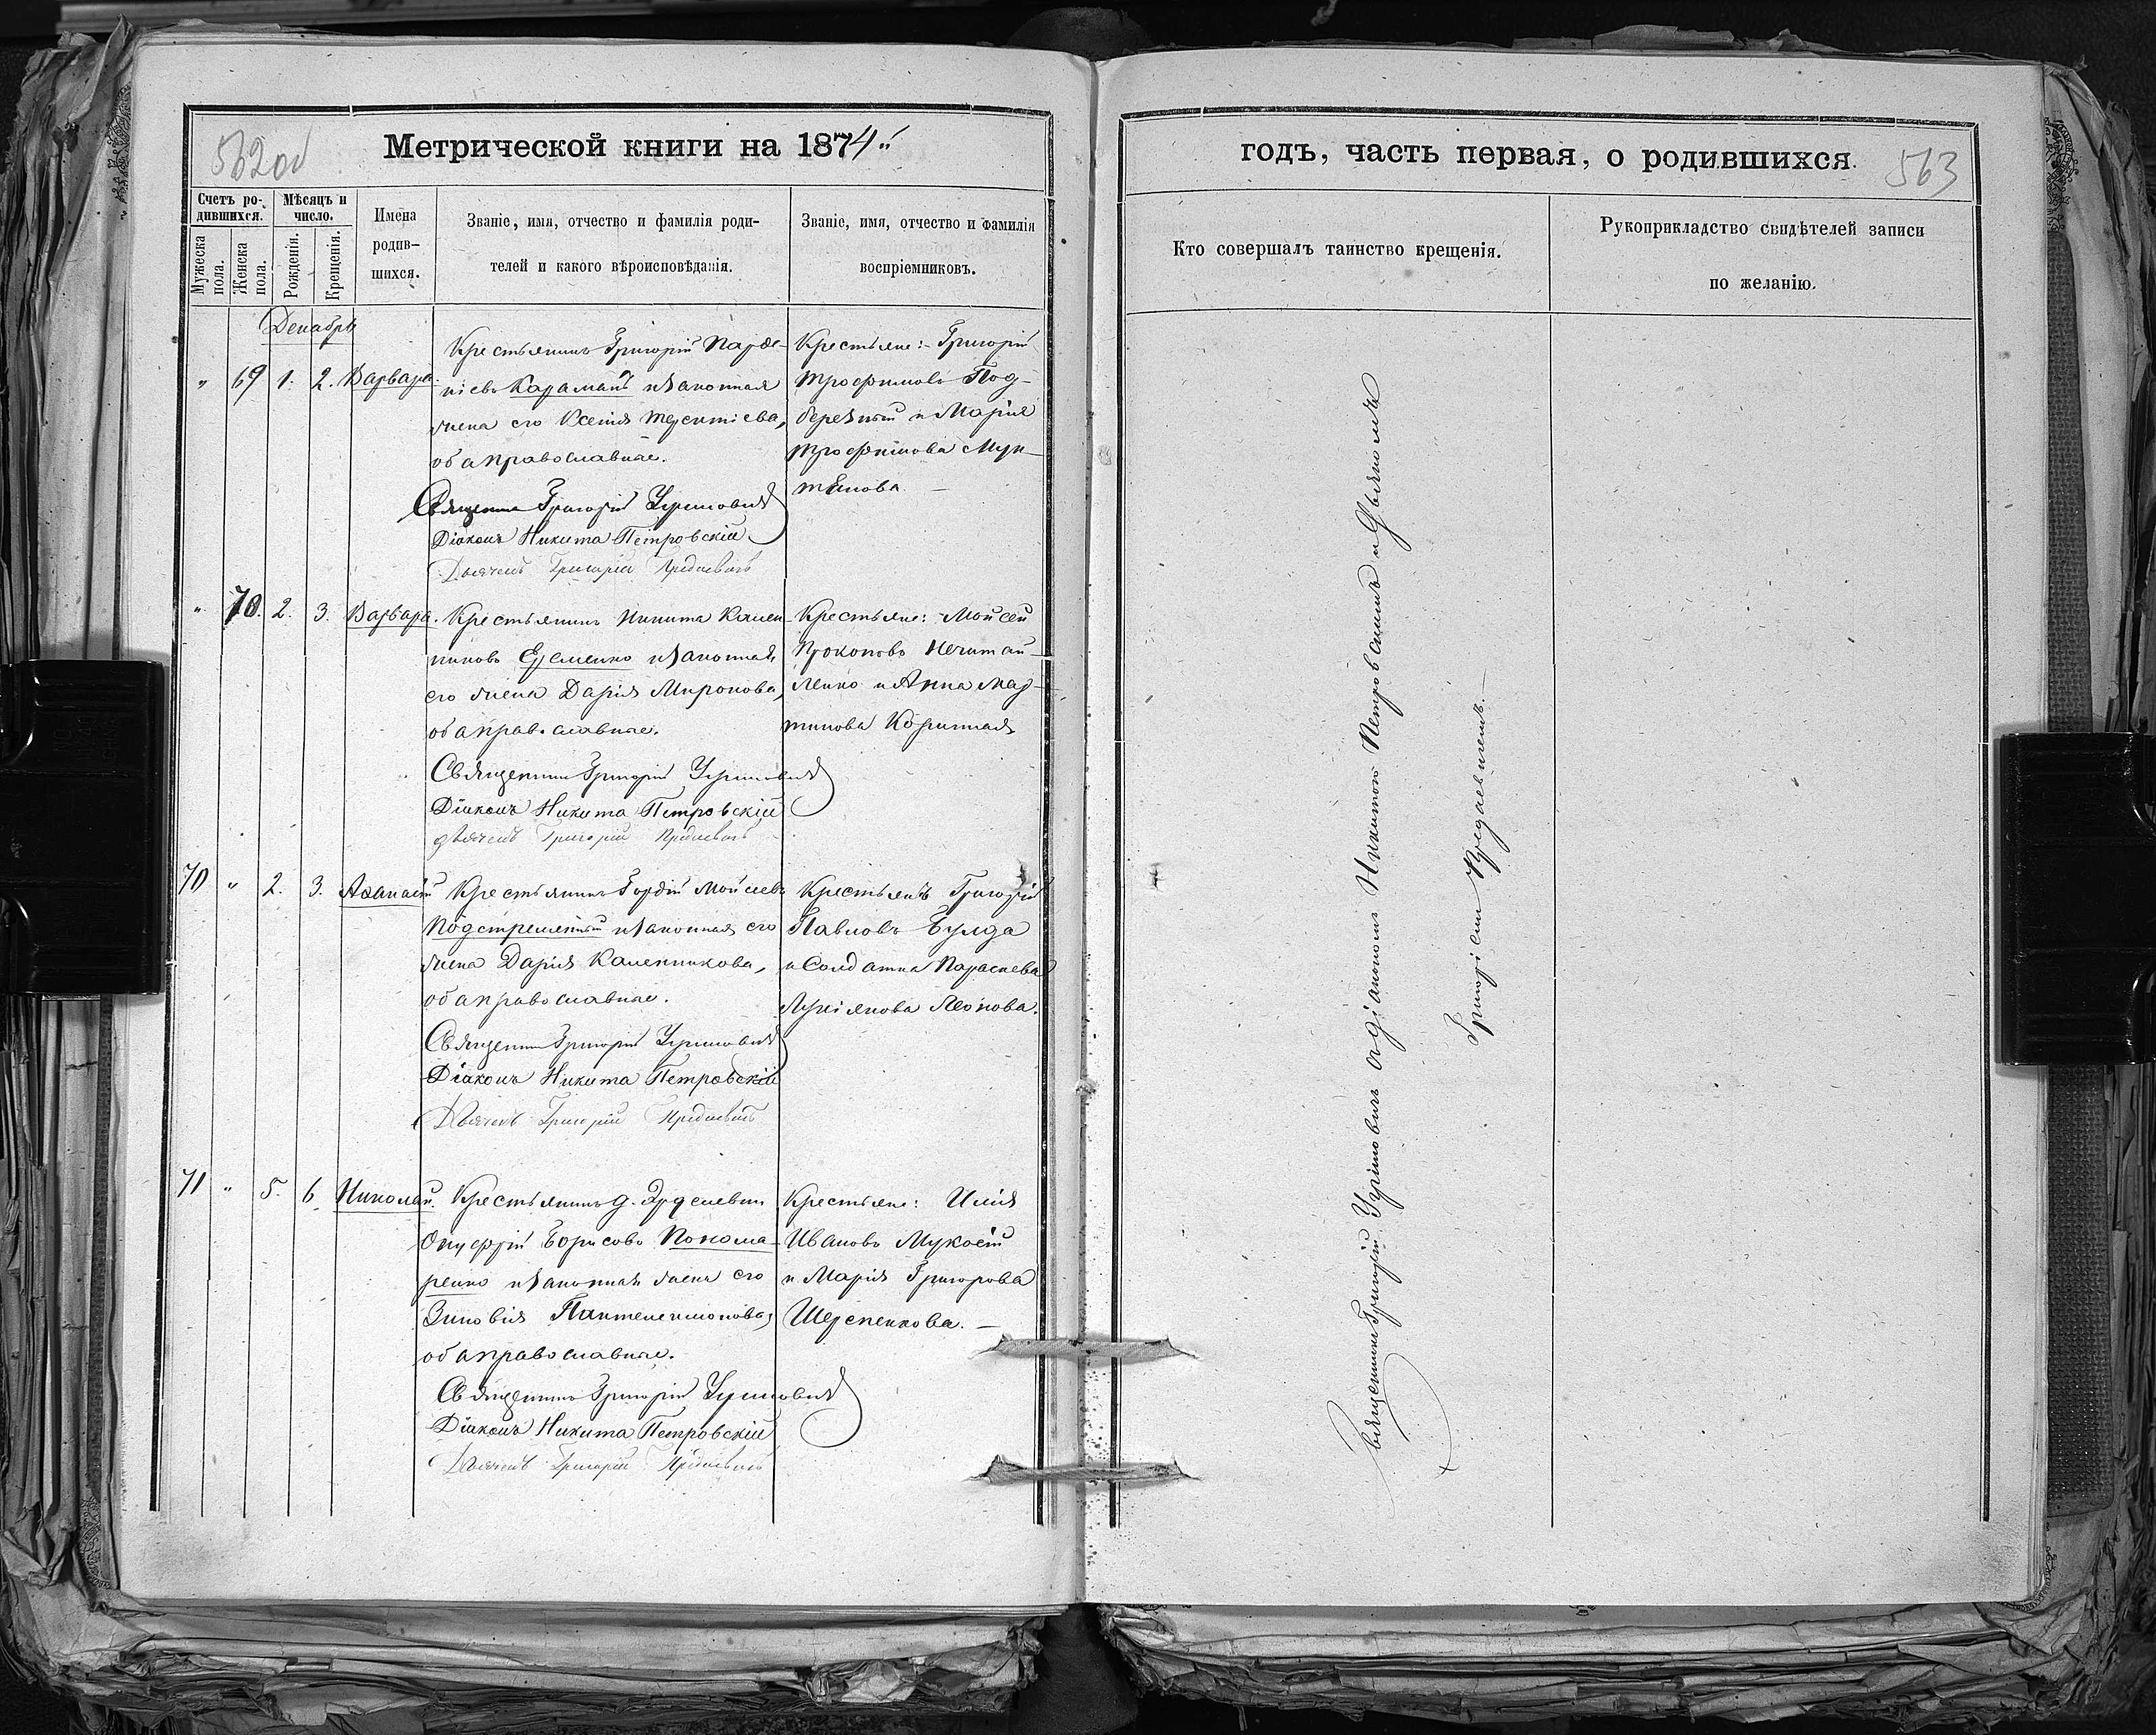 562об
Метрической книги на 1874"
Счетъ ро-
дившихся.
Мужеска пола.
Женска пола.
Мѣсяцъ и
число.
Рожденія.
Крещенія.
Имена
родив-
шихся.
Званіе, имя, отчество и фамилія роди-
телей и какого вѣроисповѣданія.
Званіе, имя, отчество и фамилія
воспріемниковъ.
Декабрь
" 69 1. 2. Варвара.
Крестьянинъ Григорій Парѳе-
ніевъ Караманъ и законная
жена его Ксенія Терентіева,
оба православные.
Священникъ Григорій
Діаконъ Никита Петровскій
Дьячекъ Григорій
Крестьяне: Григорій
Трофимовъ Под-
березный и Марія
Трофимова Мун-
тянова. —
" 70. 2. 3. Варвара.
Крестьянинъ Никита Камен-
никовъ Еременко и законная
его жена Дарія Миронова,
оба православные.
Священникъ Григорій
Діаконъ Никита Петровскій
Дьячекъ Григорій
Крестьяне: Мойсей
Прокоповъ Нечитай-
ленко и Анна Мар-
тинова Коритная
70 " 2. 3. Аѳанасій
Крестьянинъ Гордій Мойсеевъ
Подстреленный и законная его
жена Дарія Каленникова,
оба православные.
Священникъ Григорій
Діаконъ Никита Петровскій
Дьячекъ Григорій
Крестьянъ Григорій
Павловъ Булда
и Солдатка Параскева
Лукіянова Леонова.
71 " 5. 6. Николай.
Крестьянинъ д.
Онуфрій Борисовъ Понома-
ренко и законная жена его
Зиновія Пантелеимонова,
оба православные.
Священникъ Григорій
Діаконъ Никита Петровскій
Дьячекъ Григорій
Крестьяне: Илія
Ивановъ Мукосій
и Марія Григорова
Шерепенкова. —
годъ, часть первая, о родившихся.
563
Кто совершалъ таинство крещенія.
Рукоприкладство свидѣтелей записи
по желанію.
Священникъ Григорій съ діакономъ Никитою Петровскимъ и Дьячкомъ
Григоріемъ